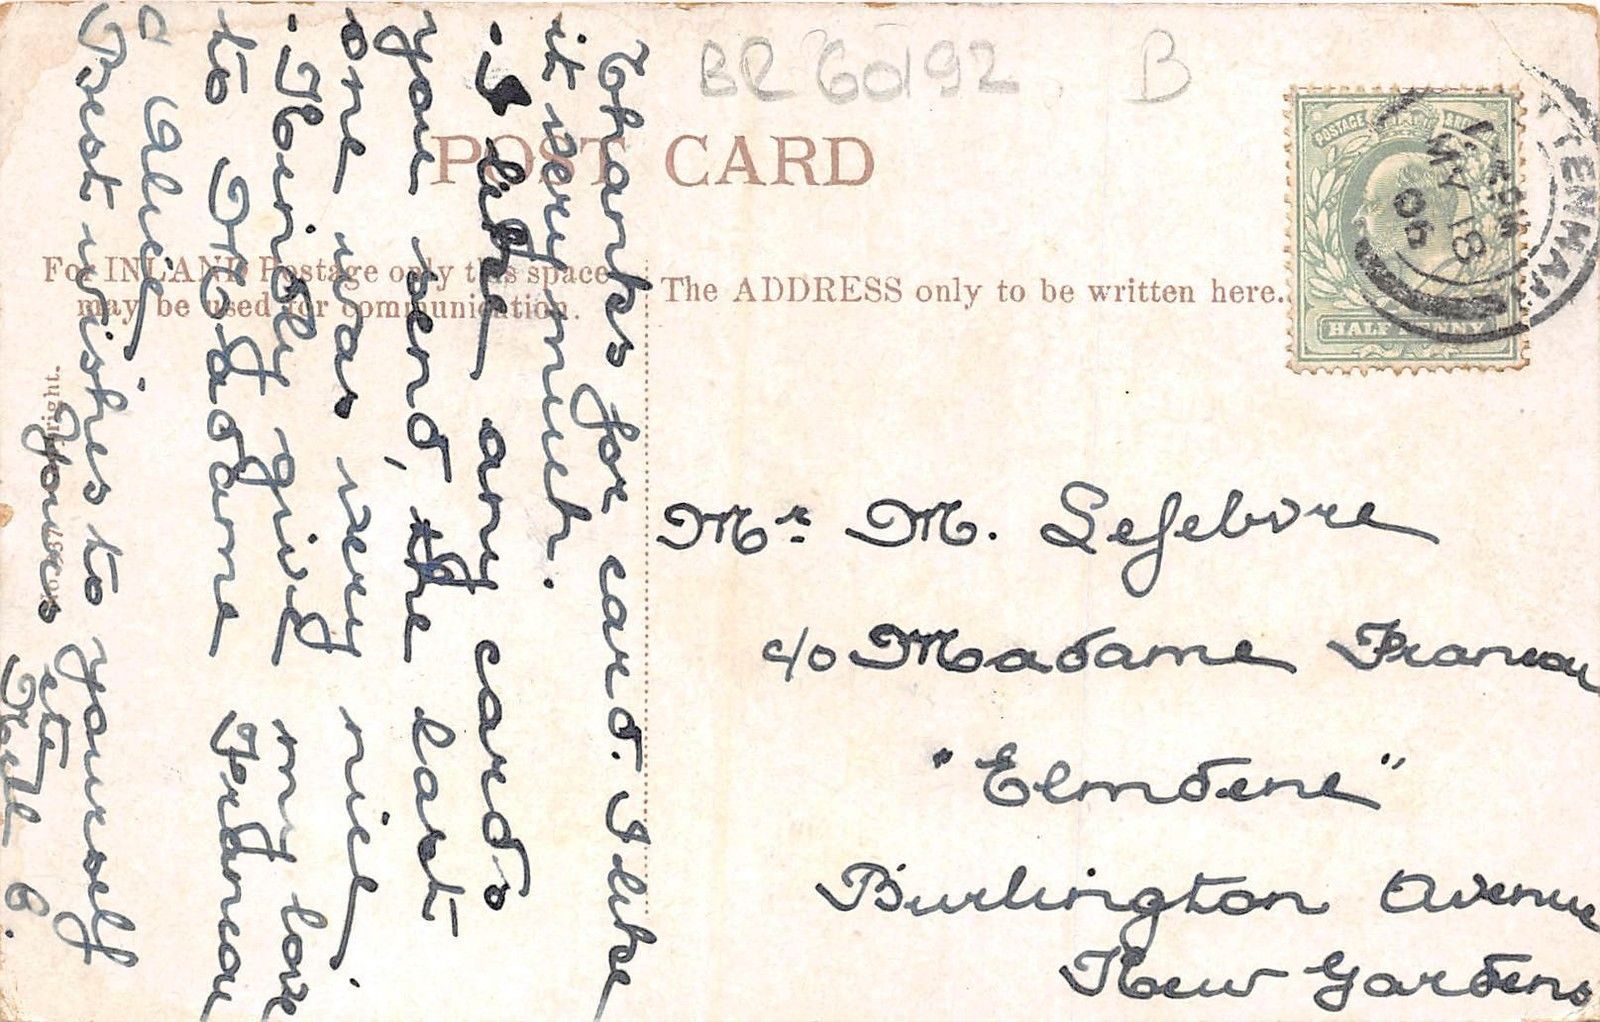 BR 60192. B
POST CARD
For INLAND Postage only this space
may be used for communication.
The ADDRESS only to be written here.
POSTAGE & REVENUE
HALFPENNY
TTENHAM
MY 18
06
Thanks for card. I like
it very much.
- I like any cards
you send, the last
one was very nice
- Kindly give my love
to Madame Franeau
& Alice
Best wishes to yourself
Yours etc
Nell C.
Mr. M. Lefebvre
c/o Madame Franeau
"Elmdene"
Burlington Avenue
Kew Gardens